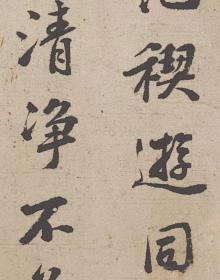 禊遊同
清淨不